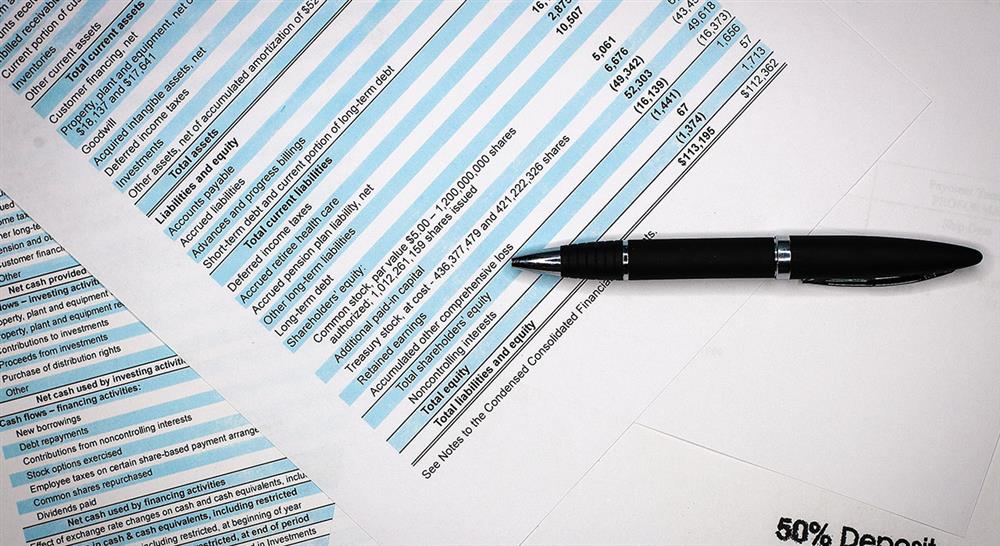 billed receivable
Current portion of cus
Inventories
Other current assets
Total current assets
Customer financing, net
Property, plant and equipment, net o
$18,137 and $17,641
Goodwill
Acquired intangible assets, net
Deferred income taxes
Investments
Other assets, net of accumulated amortization of $52
Total assets
Liabilities and equity
Accounts payable
Accrued liabilities
Advances and progress billings
Short-term debt and current portion of long-term debt
Total current liabilities
Deferred income taxes
Accrued retiree health care
Accrued pension plan liability, net
Other long-term liabilities 10,507
Long-term debt
Shareholders equity
Common stock, par value $5.00 – 1,200,000,000 shares
authorized; 1,012,261,159 shares issued 5,061
Additional paid-in capital 6,676
Treasury stock, at cost - 436,377,479 and 421,222,326 shares (49,342)
Retained earnings 52,303 49,618
Accumulated other comprehensive loss (16,139) (16,373)
Total shareholders' equity (1,441) 1,656
Noncontrolling interests 67 57
Total equity (1,374) 1,713
Total liabilities and equity $113,195 $112,362
See Notes to the Condensed Consolidated Financial
Other
Net cash provided
ows – investing activit
operty, plant and equipment r
operty, plant and equipment re
Contributions to investments
Proceeds from investments
Purchase of distribution rights
Other
Net cash used by investing activiti
Cash flows – financing activities:
New borrowings
Debt repayments
Contributions from noncontrolling interests
Stock options exercised
Employee taxes on certain share-based payment arrange
Common shares repurchased
Dividends paid
Net cash used by financing activities
Effect of exchange rate changes on cash and cash equivalents, inclu
in cash & cash equivalents, including restricted
including restricted, at beginning of year
restricted, at end of period
in Investments
50% Deposit